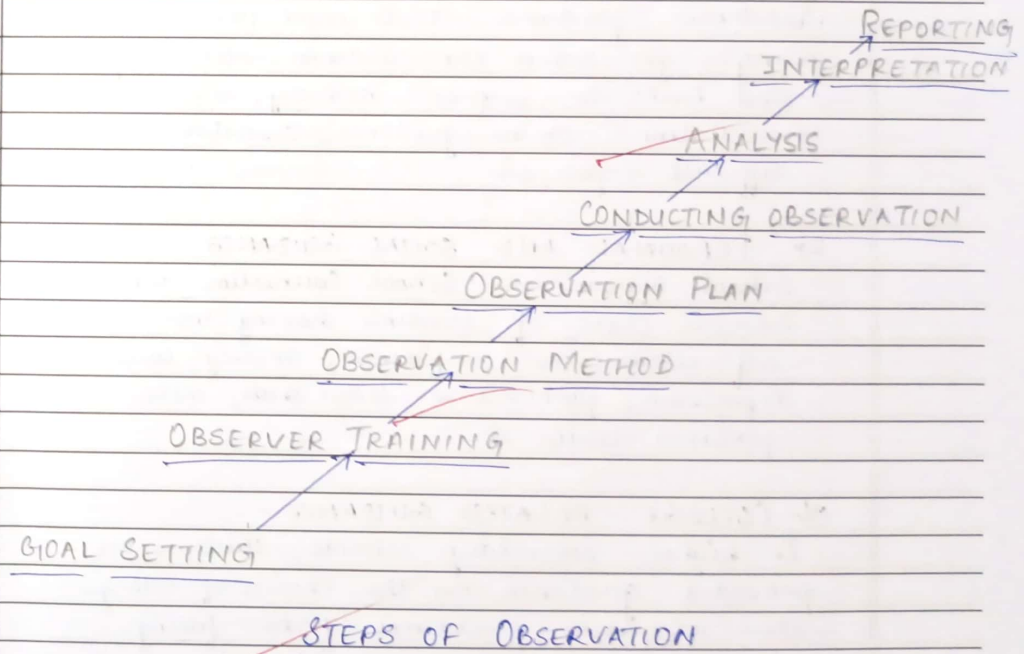 REPORTING
INTERPRETATION
ANALYSIS
CONDUCTING OBSERVATION
OBSERVATION PLAN
OBSERVATION METHOD
OBSERVER TRAINING
GOAL SETTING
STEPS OF OBSERVATION